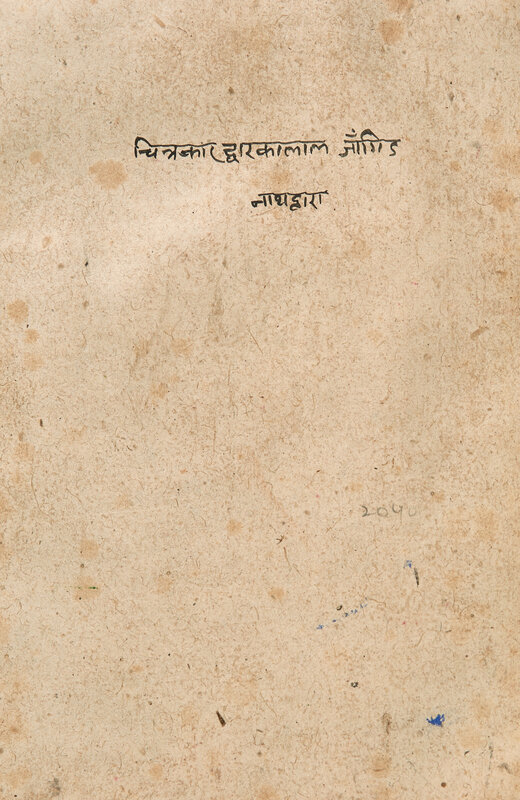 चित्रकार द्वारकालाल जाँगिड
नाथद्वारा